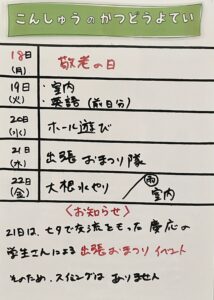 こんしゅうのかつどうよてい
18日(月) 敬老の日
19日(火) ・室内
・英語(前日分)
20日(水) ホール遊び
21日(木) 出張おまつり隊
22日(金) 大根水やり/雨 室内
〈お知らせ〉
21日は、七夕で交流をもった慶応の
学生さんによる出張おまつりイベント
そのため、スイミングはありません